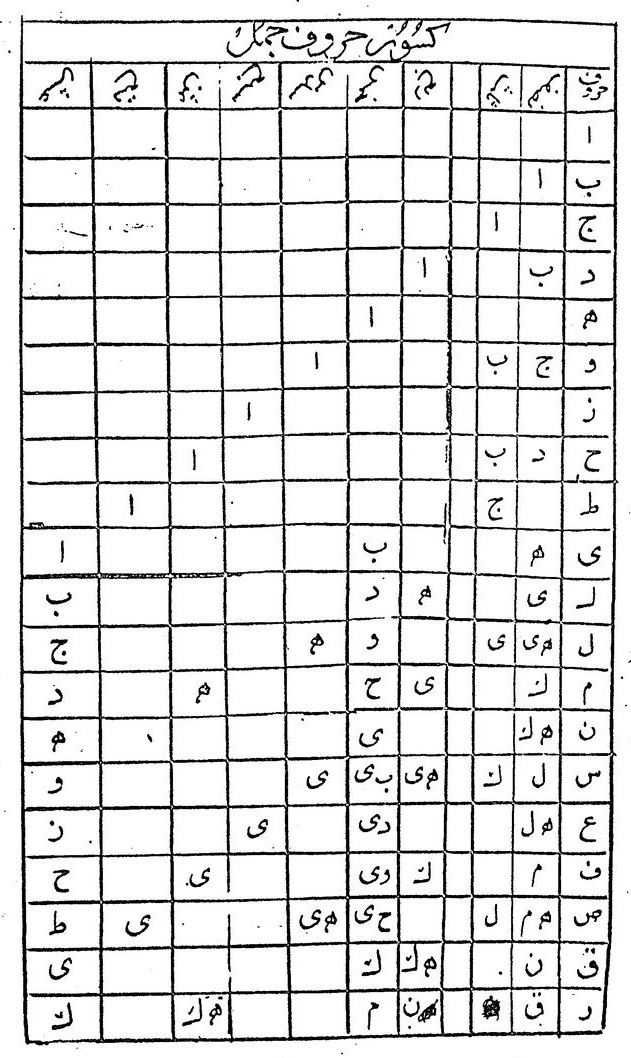 كسور حروف جمل
حروف نصف ثلث ربع خمس سدس سبع ثمن تسع عشر
ا
ب ا
ج ا
د ب ا
ه ا
و ج ب ا
ز ا
ح د ب ا
ط ج ا
ی ه ب ا
ك ی ه د ب
ل هی ی و ه ج
م ك ی ح ه د
ن هك ی ه
س ل ك هی بی ی و
ع هل دی ی ز
ف م ك وی ی ح
ص هم ل حی هی ی ط
ق ن هك ك ی
ر ق ن م هك ك